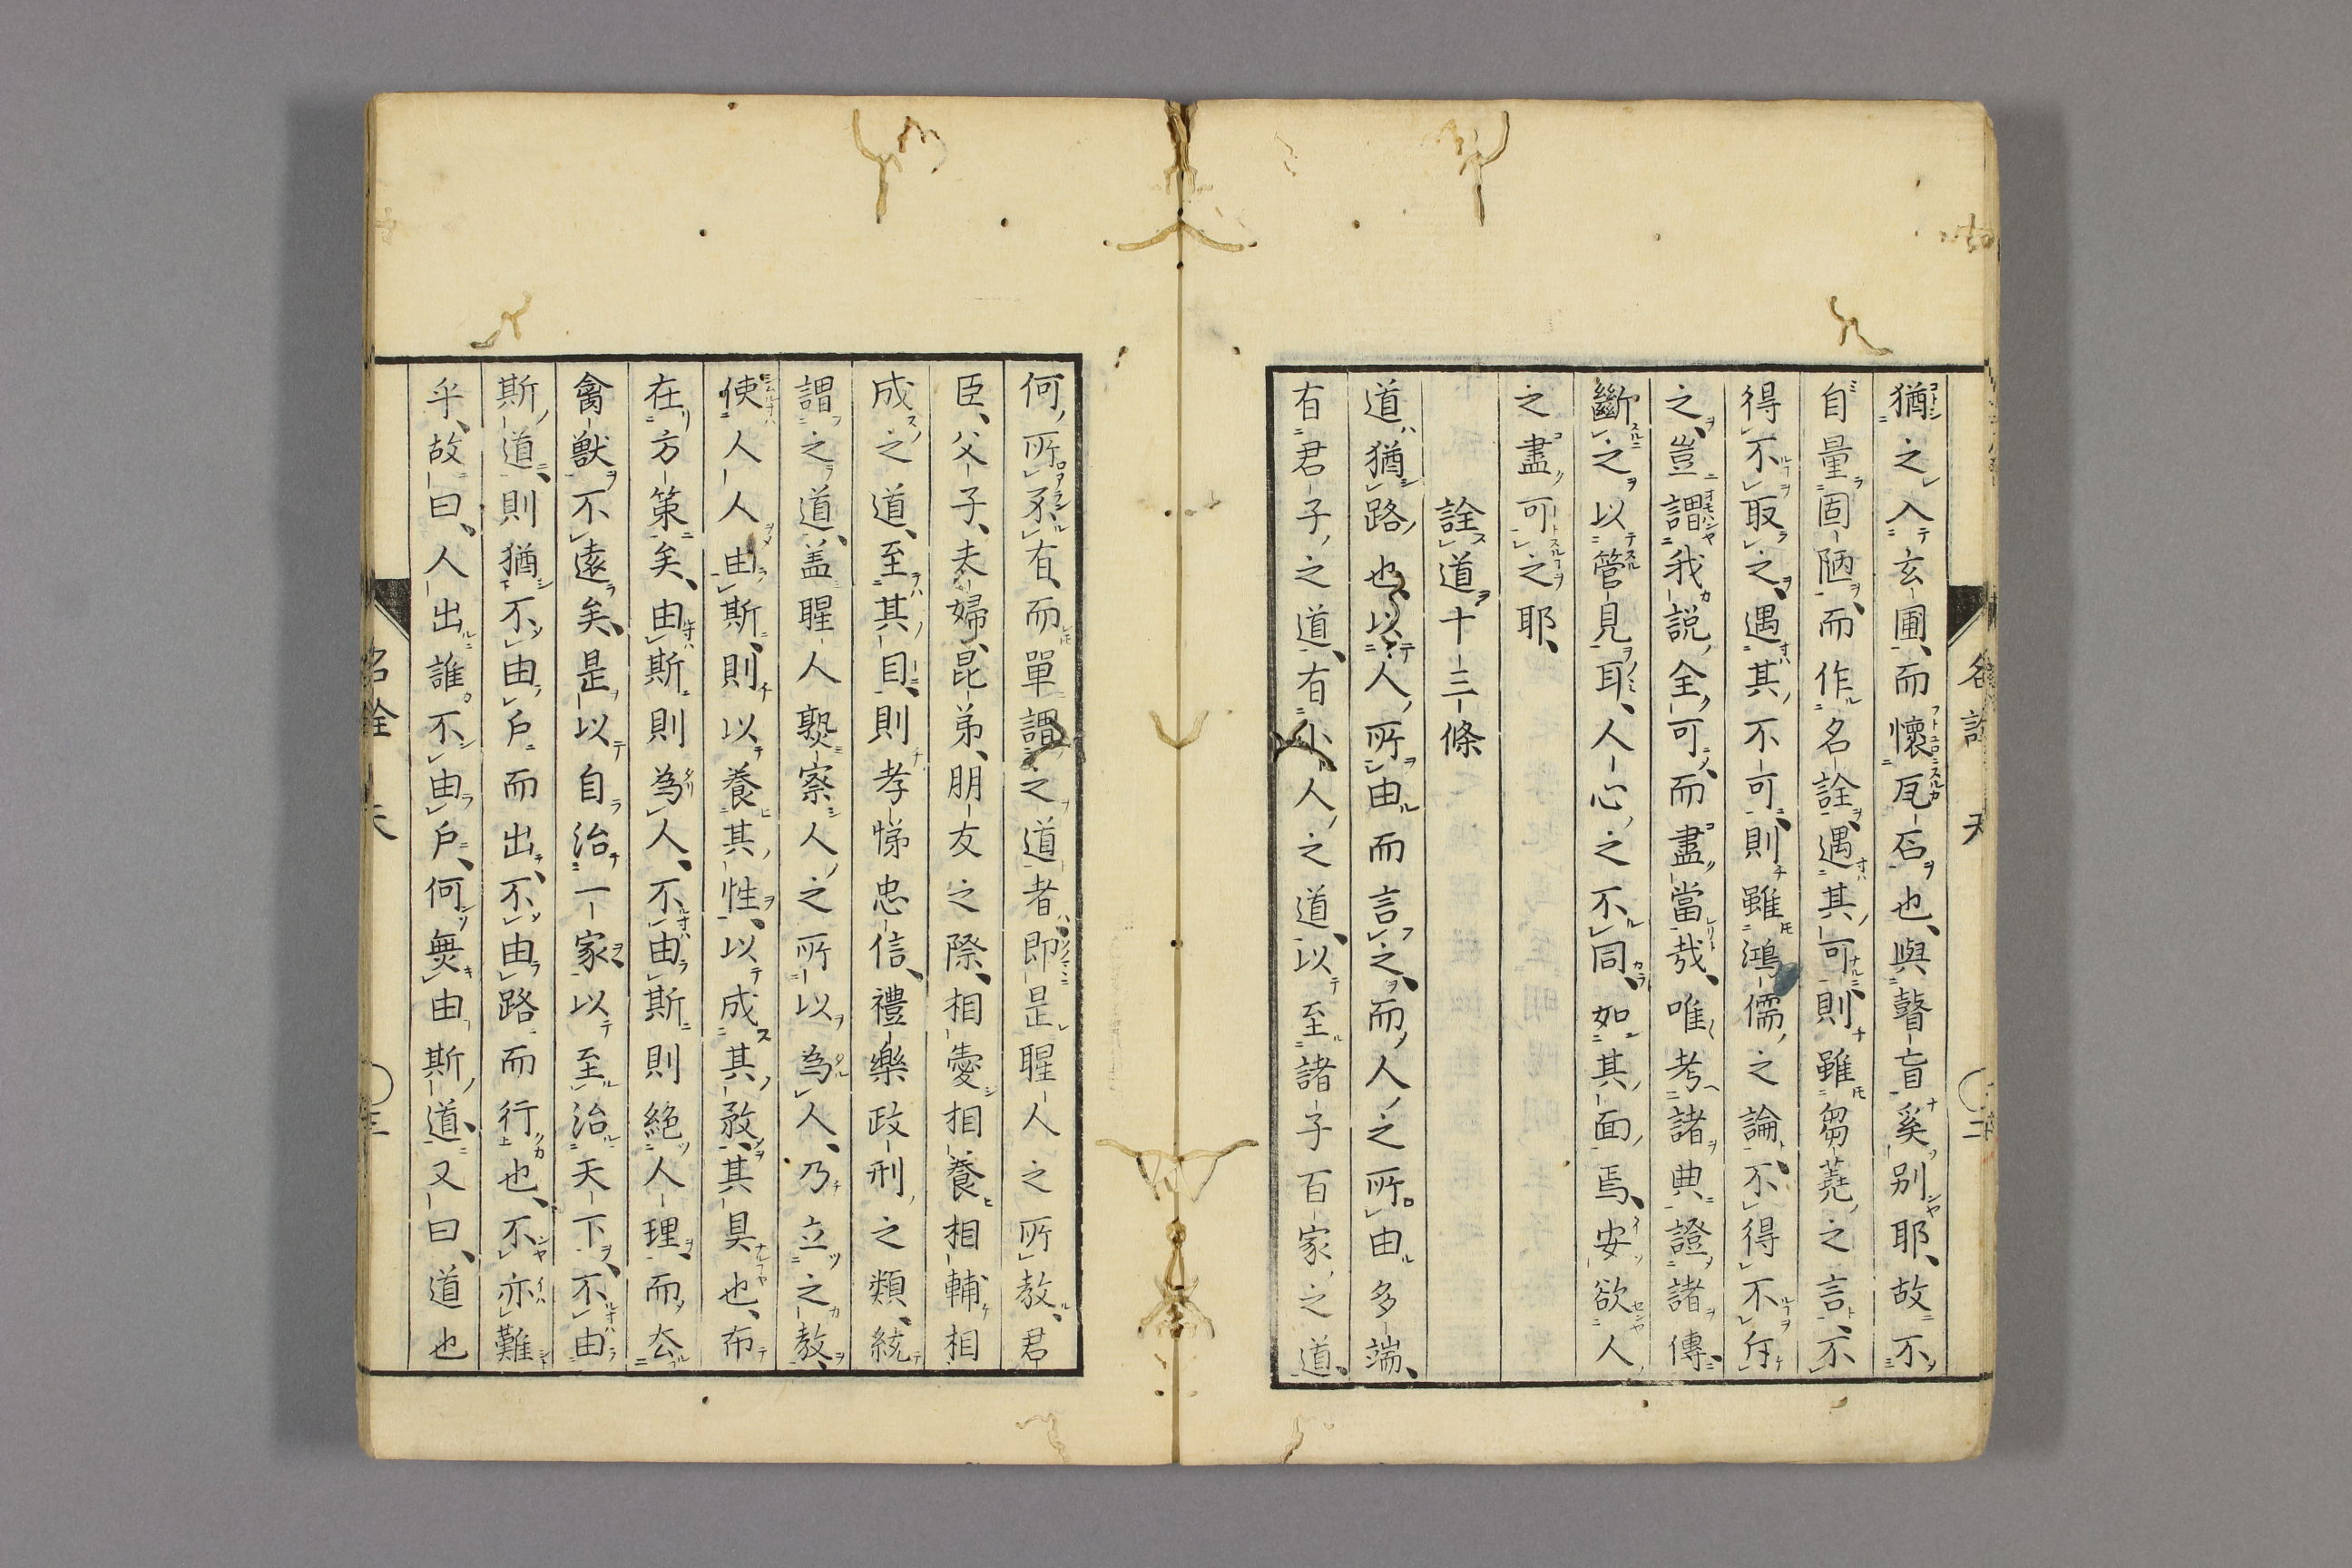 猶之入玄圃、而懷瓦石也、與瞽盲奚別耶、故不
自量固陋、而作名詮、遇其可、則雖芻蕘之言、不
得不取之、遇其不可、則雖鴻儒之論、不得不斥
之、豈謂我說全可、而盡當哉、唯考諸典、證諸傳、
斷之以管見耳、人心之不同、如其面焉、安欲人
之盡可之耶、
詮道十三條
道猶路也、以人所由而言之、而人之所由多端、
有君子之道、有小人之道、以至諸子百家之道、
何所不有、而單謂之道者、即是聖人之所教、君
臣、父子、夫婦、昆弟、朋友之際、相愛相養相輔相
成之道、至其目、則孝悌忠信、禮樂政刑之類、統
謂之道、蓋聖人熟察人之所以為人、乃立之教、
使人人由斯、則以養其性、以成其敎、其具也、布
在方策矣、由斯則為人、不由斯則絕人理、而去
禽獸不遠矣、是以自治一家以至治天下、不由
斯道、則猶不由戶而出、不由路而行也、不亦難
乎、故曰、人出誰不由戶、何無由斯道、又曰、道也
名詮 天 二
名詮 天 三